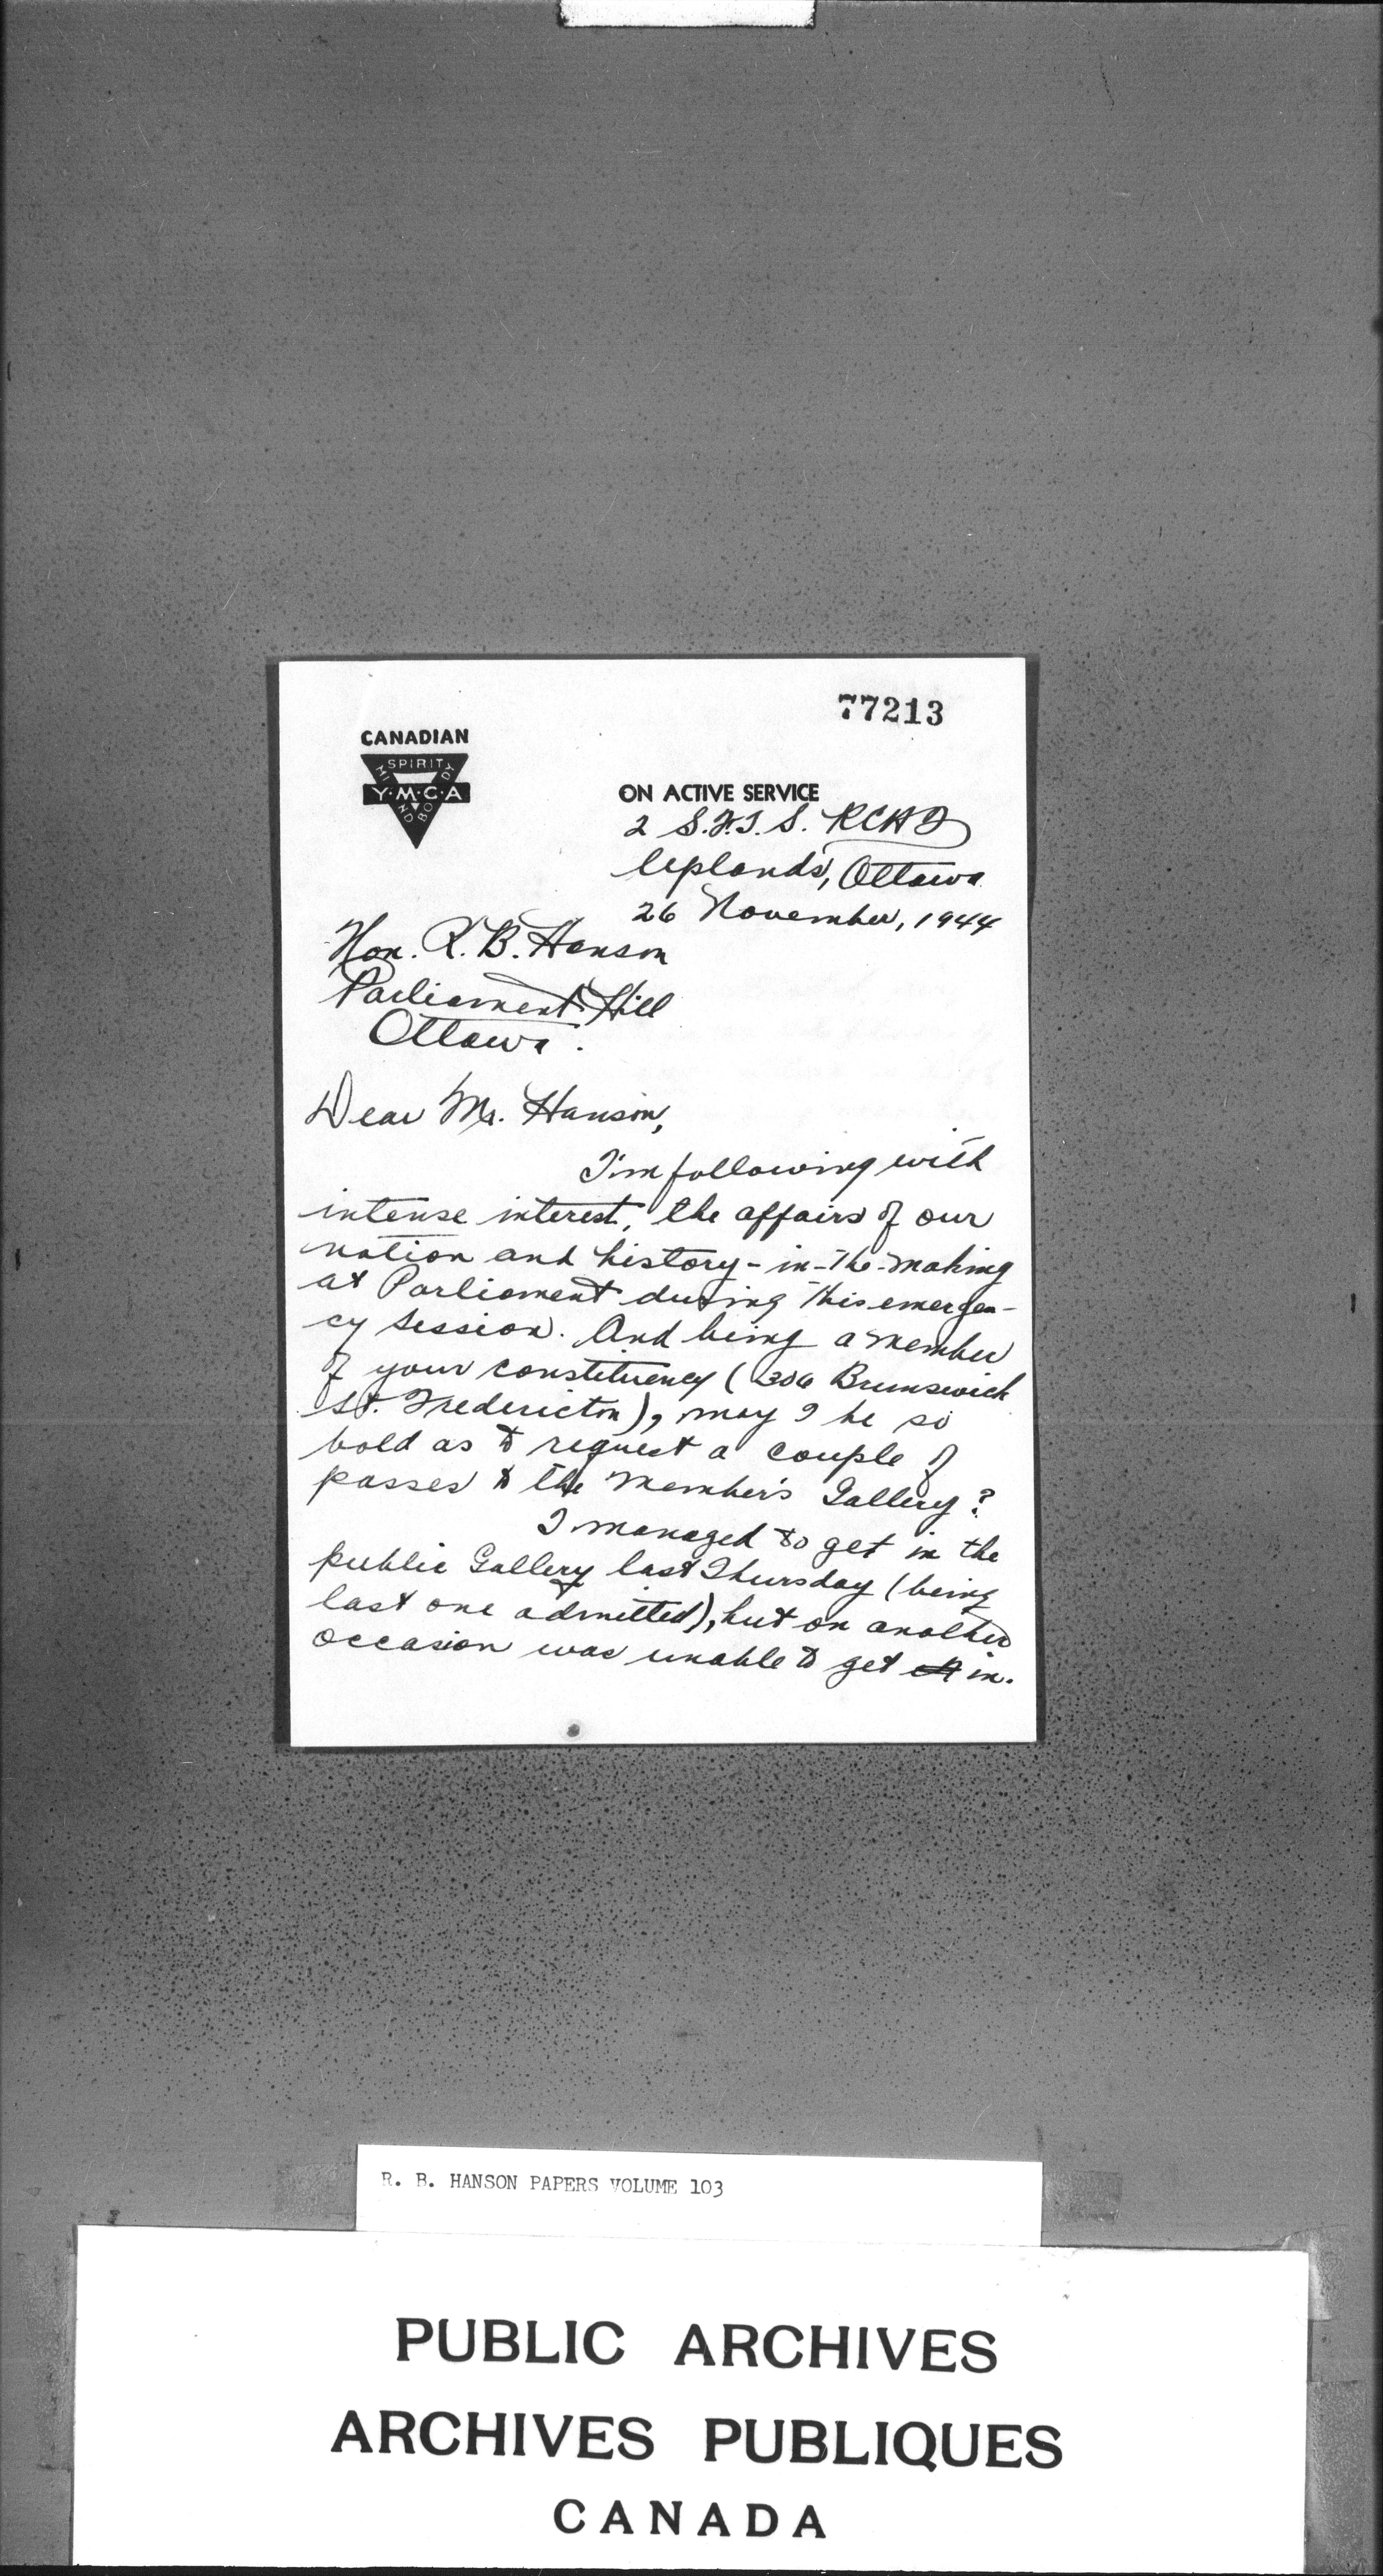 77213
CANADIAN
SPIRIT
MIND
BODY
Y·M·C·A
ON ACTIVE SERVICE
2 S.F.T.S. RCAF
Uplands, Ottawa
26 November, 1944
Hon. R. B. Hanson
Parliament Hill
Ottawa.
Dear Mr. Hanson,
I'm following with
intense interest, the affairs of our
nation and history-in-the-making
at Parliament during this emergen-
cy session. And being a member
of your constituency (306 Brunswick
St. Fredericton), may I be so
bold as to request a couple of
passes to the Member's Gallery?
I managed to get in the
public Gallery last Thursday (being
last one admitted), but on another
occasion was unable to get in.
R. B. HANSON PAPERS VOLUME 103
PUBLIC ARCHIVES
ARCHIVES PUBLIQUES
CANADA